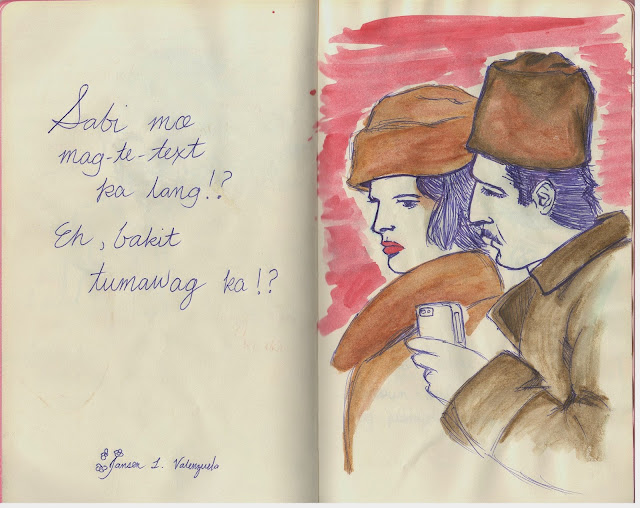 Sabi mo
mag-te-text
ka lang!?
Eh, bakit
tumawag ka!?
Jansen I. Valenzuela